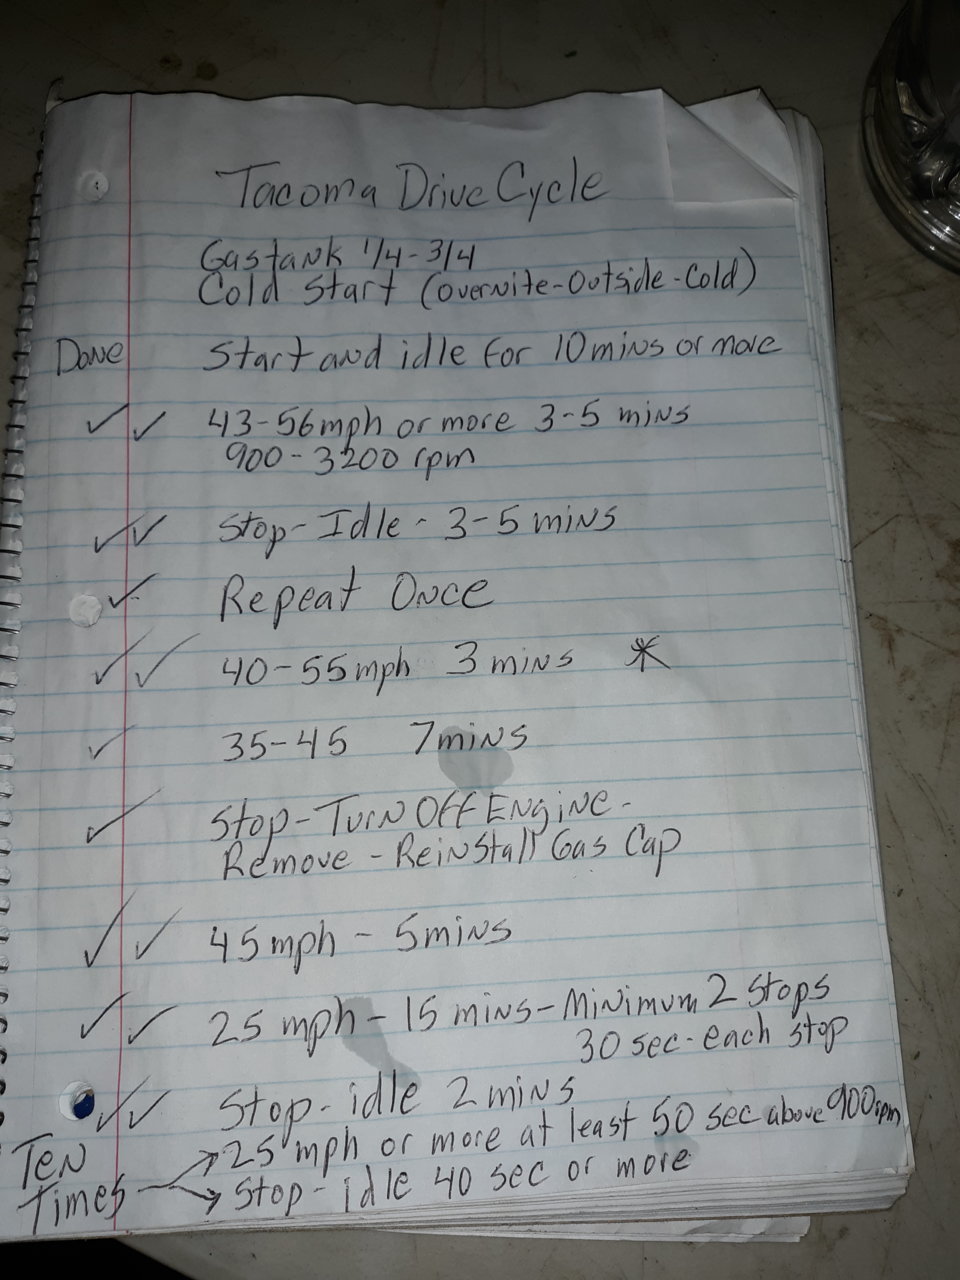 Tacoma Drive Cycle
Gas tank 1/4-3/4
Cold Start (overnite-outside-Cold)
Done Start and idle for 10 mins or more
✓ ✓ 43-56 mph or more 3-5 mins
900-3200 rpm
✓ ✓ Stop-Idle - 3-5 mins
✓ Repeat Once
✓ ✓ 40-55 mph 3 mins *
✓ 35-45 7 mins
✓ Stop-Turn Off Engine-
Remove-Reinstall Gas Cap
✓ ✓ 45 mph - 5 mins
✓ ✓ 25 mph - 15 mins - Minimum 2 stops
30 sec-each stop
✓ ✓ Stop-idle 2 mins
Ten Times → 25 mph or more at least 50 sec above 900 rpm
→ Stop-idle 40 sec or more